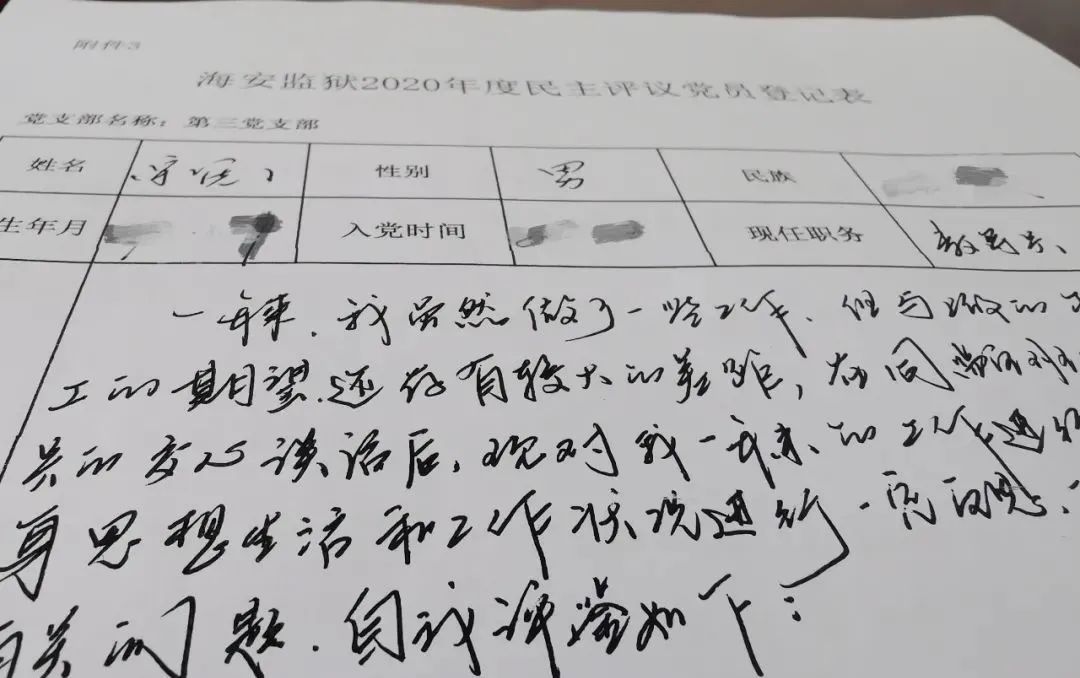 附件3
海安监狱2020年度民主评议党员登记表
党支部名称：第三党支部
姓名 性别 男 民族
生年月 入党时间 现任职务
一年来，我虽然做了一些工作，但与
工的期望还存有较大的差距，在同
的交心谈话后，现对我一年来的工作
思想生活和工作状况进行一
有关问题，自我评鉴如下：